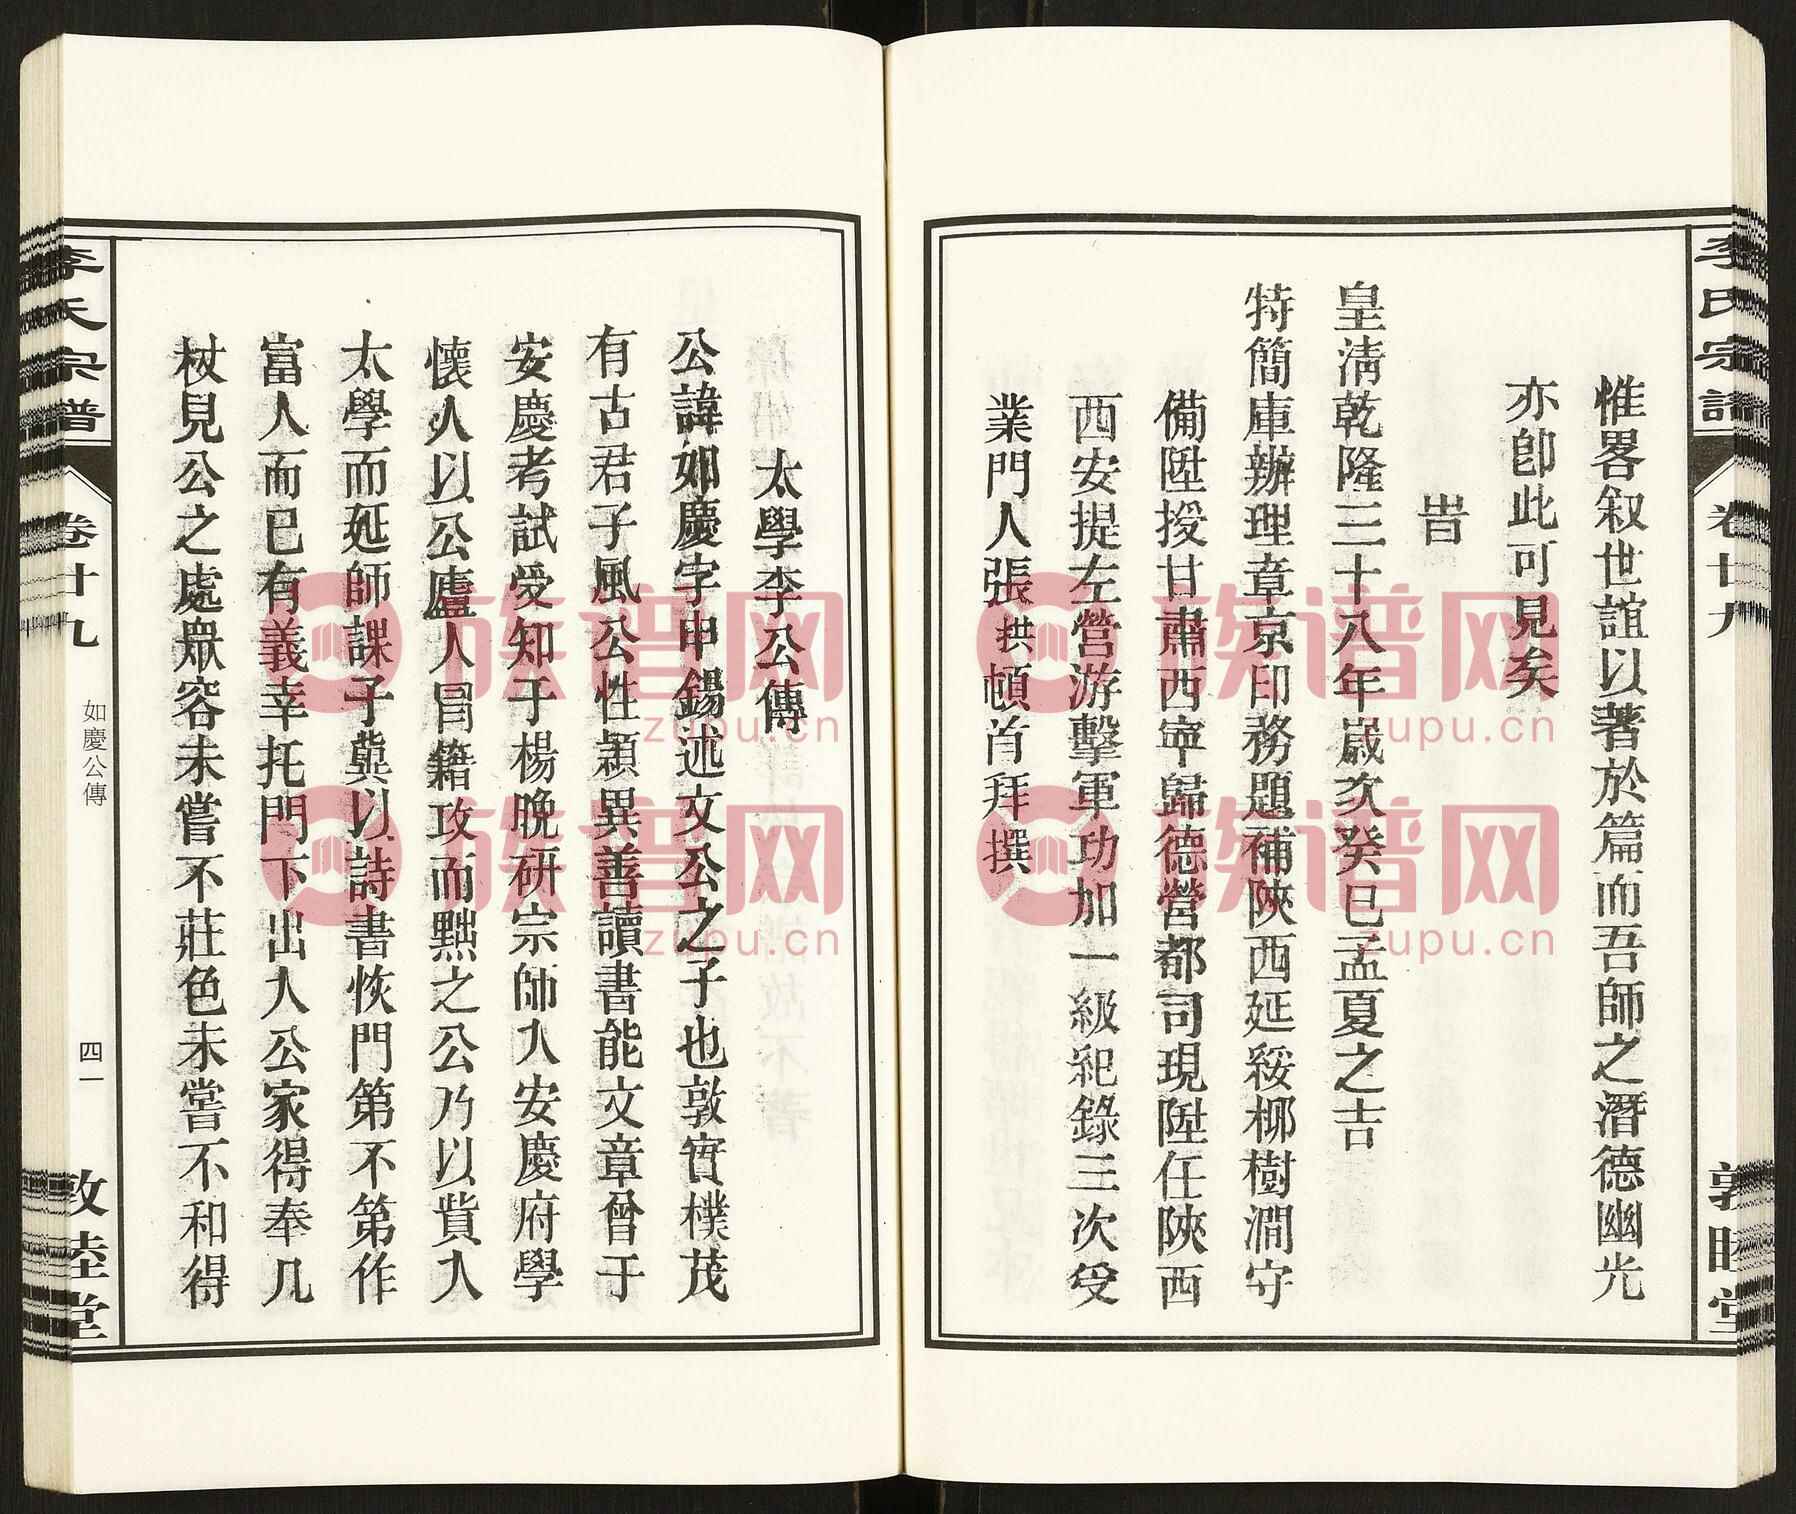 李氏宗譜
卷廿九
敦睦堂
惟畧叙世誼以著於篇而吾師之潛德幽光
亦卽此可見矣
旹
皇淸乾隆三十八年嵗次癸巳孟夏之吉
特簡庫辦理章京印務題補陝西延綏柳樹澗守
備陞授甘肅西寧歸德營都司現陞任陝西
西安提左營游擊軍功加一級紀錄三次受
業門人張拱頓首拜撰
太學李公傳
公諱如慶字申錫述文公之子也敦實樸茂
有古君子風公性穎異善讀書能文章曾于
安慶考試受知于楊晚研宗師入安慶府學
懷人以公廬人冒籍攻而黜之公乃以貲入
太學而延師課子冀以詩書恢門第不第作
富人而已有義幸托門下出入公家得奉几
杖見公之處衆容未嘗不莊色未嘗不和得
李氏宗譜
卷廿九
如慶公傳
四一
敦睦堂
族谱网
zupu.cn
族谱网
zupu.cn
族谱网
zupu.cn
族谱网
zupu.cn